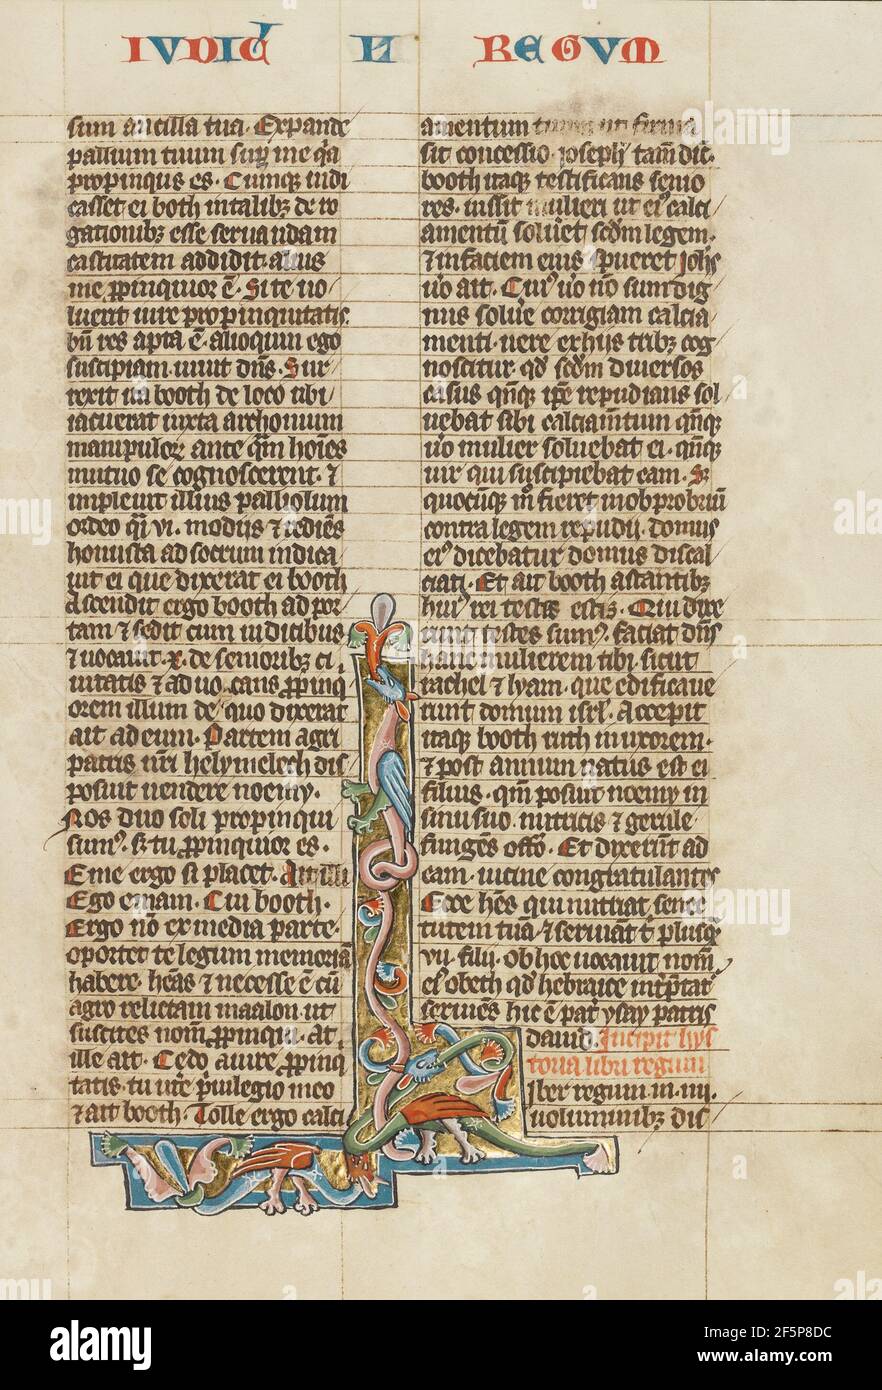 IUDIC N REGUM
sum ancilla tua. Expande
pallium tuum sup me qa
propinquus es. Cumq; indi
casset ei both in talib; de ro
gationib; esse seruandam
castitatem addidit. alius
me ppinquior ē. Si te uo
luerit iure propinquitatis.
bn̄ res apta ē. alioquin ego
suscipiam. uiuit dn̄s. Sur
rexit ita booth de loco ubi
iacuerat iuxta archonium
manipulor ante qm hoīes
mutuo se cognoscerent. ⁊
impleuit illius palliolum
ordeo qi vi. modijs ⁊ rediēs
honusta ad socrum indica
uit ei que dixerat ei booth
Ascendit ergo booth ad por
tam ⁊ sedit cum iudicibus
⁊ uocauit .x. de seniorib; ci
uitatis ⁊ ad uo cans ppinq
orem illum de quo dixerat
ait ad eum. Partem agri
patris nr̄i helymelech dis
posuit uendere noemy.
Nos duo soli propinqui
sum⁹. s; tu ppinquior es.
Eme ergo si placet. Ait illi
Ego emam. Cui booth.
Ergo nō ex media parte.
oportet te legum memoriā
habere. hēas ⁊ necesse ē cū
agro relictam maalon. ut
suscites nom̄ ppinqui. At
ille ait. Cedo a iure ppinq
tatis. tu utere p̄uilegio meo
⁊ ait booth. Tolle ergo calci
amentum ut firma
sit concessio. ioseph; tam̄ dic.
booth itaq; testificans senio
res. iussit mulieri ut ei⁹ calci
amentū solueret scd̄m legem.
⁊ in faciem eius spueret. Joh̄s
u̓o ait. Cui⁹ u̓o nō sum dig
nus solue corrigiam calcia
menti. uere ex hijs trib; cog
noscitur qd̓ scd̄m diuersos
casus qn̄q; ip̄e repudians sol
uebat sibi calciam̄tum qn̄q;
u̓o mulier soluebat ei. qn̄q;
uir qui suscipiebat eam. S;
quocūq; m̄ fieret in obprobriū
contra legem repudii. domus
ei⁹ dicebatur domus discal
ciati. Et ait booth astantib;
hui⁹ rei testes estis. Qui dixe
runt testes sum⁹. faciat dn̄s
hanc mulierem tibi. sicut
rachel ⁊ lyam. que edificaue
runt domum isrl̄. Accepit
itaq; booth ruth in uxorem.
⁊ post annum natus est ei
filius. qm̄ posuit noemy in
sinu suo. nutricis ⁊ gerule
fungēs offō. Et dixerūt ad
eam. uicine congratulantes
Ecce hēs qui nutriat senec
tutem tuā. ⁊ seruiat t̄ plusq̄
vii. filii. ob hoc uocauit nom̄
ei⁹ obeth qd̓ hebraice int̓p̄tat
seruiēs hic ē pat̓ ysay patris
dauid. Incipit hys
toria libri regum
iber regum in .iiij.
uoluminib; dis
alamy
Image ID: 2F5P8DC
www.alamy.com